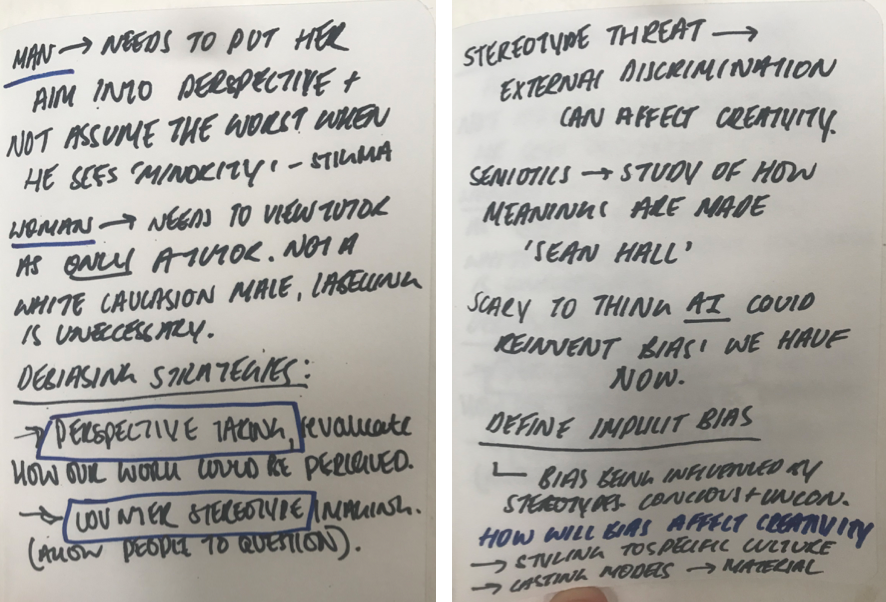 MAN → NEEDS TO PUT HER
AIM INTO PERSPECTIVE +
NOT ASSUME THE WORST WHEN
HE SEES 'MINORITY' - STIGMA
WOMAN → NEEDS TO VIEW TUTOR
AS ONLY A TUTOR. NOT A
WHITE CAUCASION MALE, LABELLING
IS UNNECCESSARY.
DEBIASING STRATEGIES:
→ PERSPECTIVE TAKING, revaluate
HOW OUR WORK COULD BE PERCEIVED.
→ COUNTER STEREOTYPE IMAGING.
(ALLOW PEOPLE TO QUESTION).
STEREOTYPE THREAT →
EXTERNAL DISCRIMINATION
CAN AFFECT CREATIVITY.
SEMIOTICS → STUDY OF HOW
MEANINGS ARE MADE
'SEAN HALL'
SCARY TO THINK AI COULD
REINVENT BIAS' WE HAVE
NOW.
DEFINE IMPLICIT BIAS
BIAS BEING INFLUENCED BY
STEREOTYPES CONCIOUS + UNCON.
HOW WILL BIAS AFFECT CREATIVITY
→ STYLING TO SPECIFIC CULTURE
→ CASTING MODELS → MATERIAL